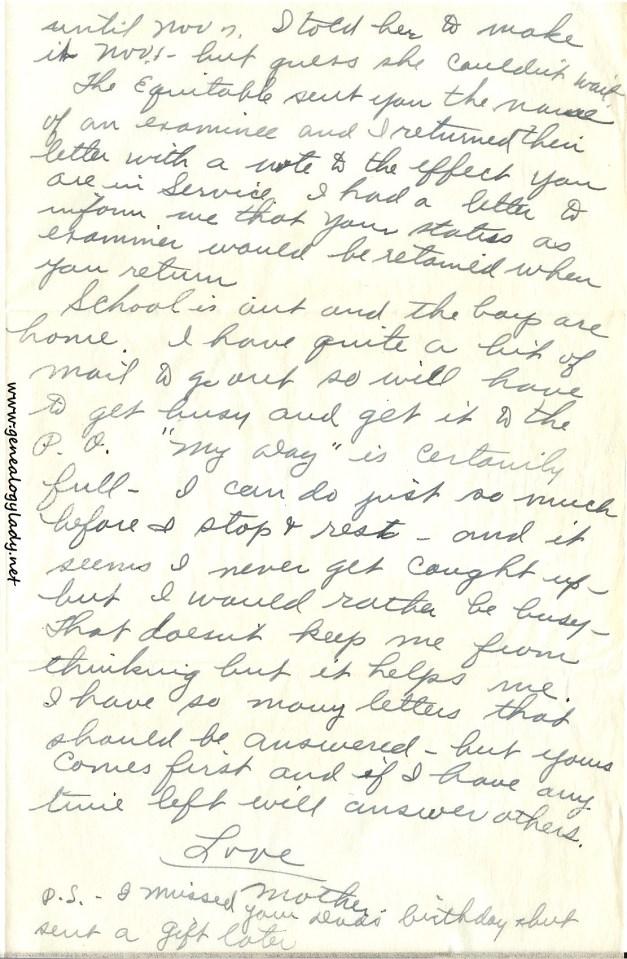 until Nov 7. I told her to make
it Nov. 1 - but guess she couldn't wait.
The Equitable sent you the name
of an examinee and I returned their
letter with a note to the effect you
are in Service. I had a letter to
inform me that your status as
examiner would be retained when
you return
School is out and the boys are
home. I have quite a bit of
mail to go out so will have
to get busy and get it to the
P. O. "My day" is certainly
full - I can do just so much
before I stop & rest - and it
seems I never get caught up -
but I would rather be busy -
That doesn't keep me from
thinking but it helps me.
I have so many letters that
should be answered - but yours
comes first and if I have any
time left will answer others.
Love
Mother
P.S. - I missed your Dad's birthday but
sent a gift later
www.genealogylady.net